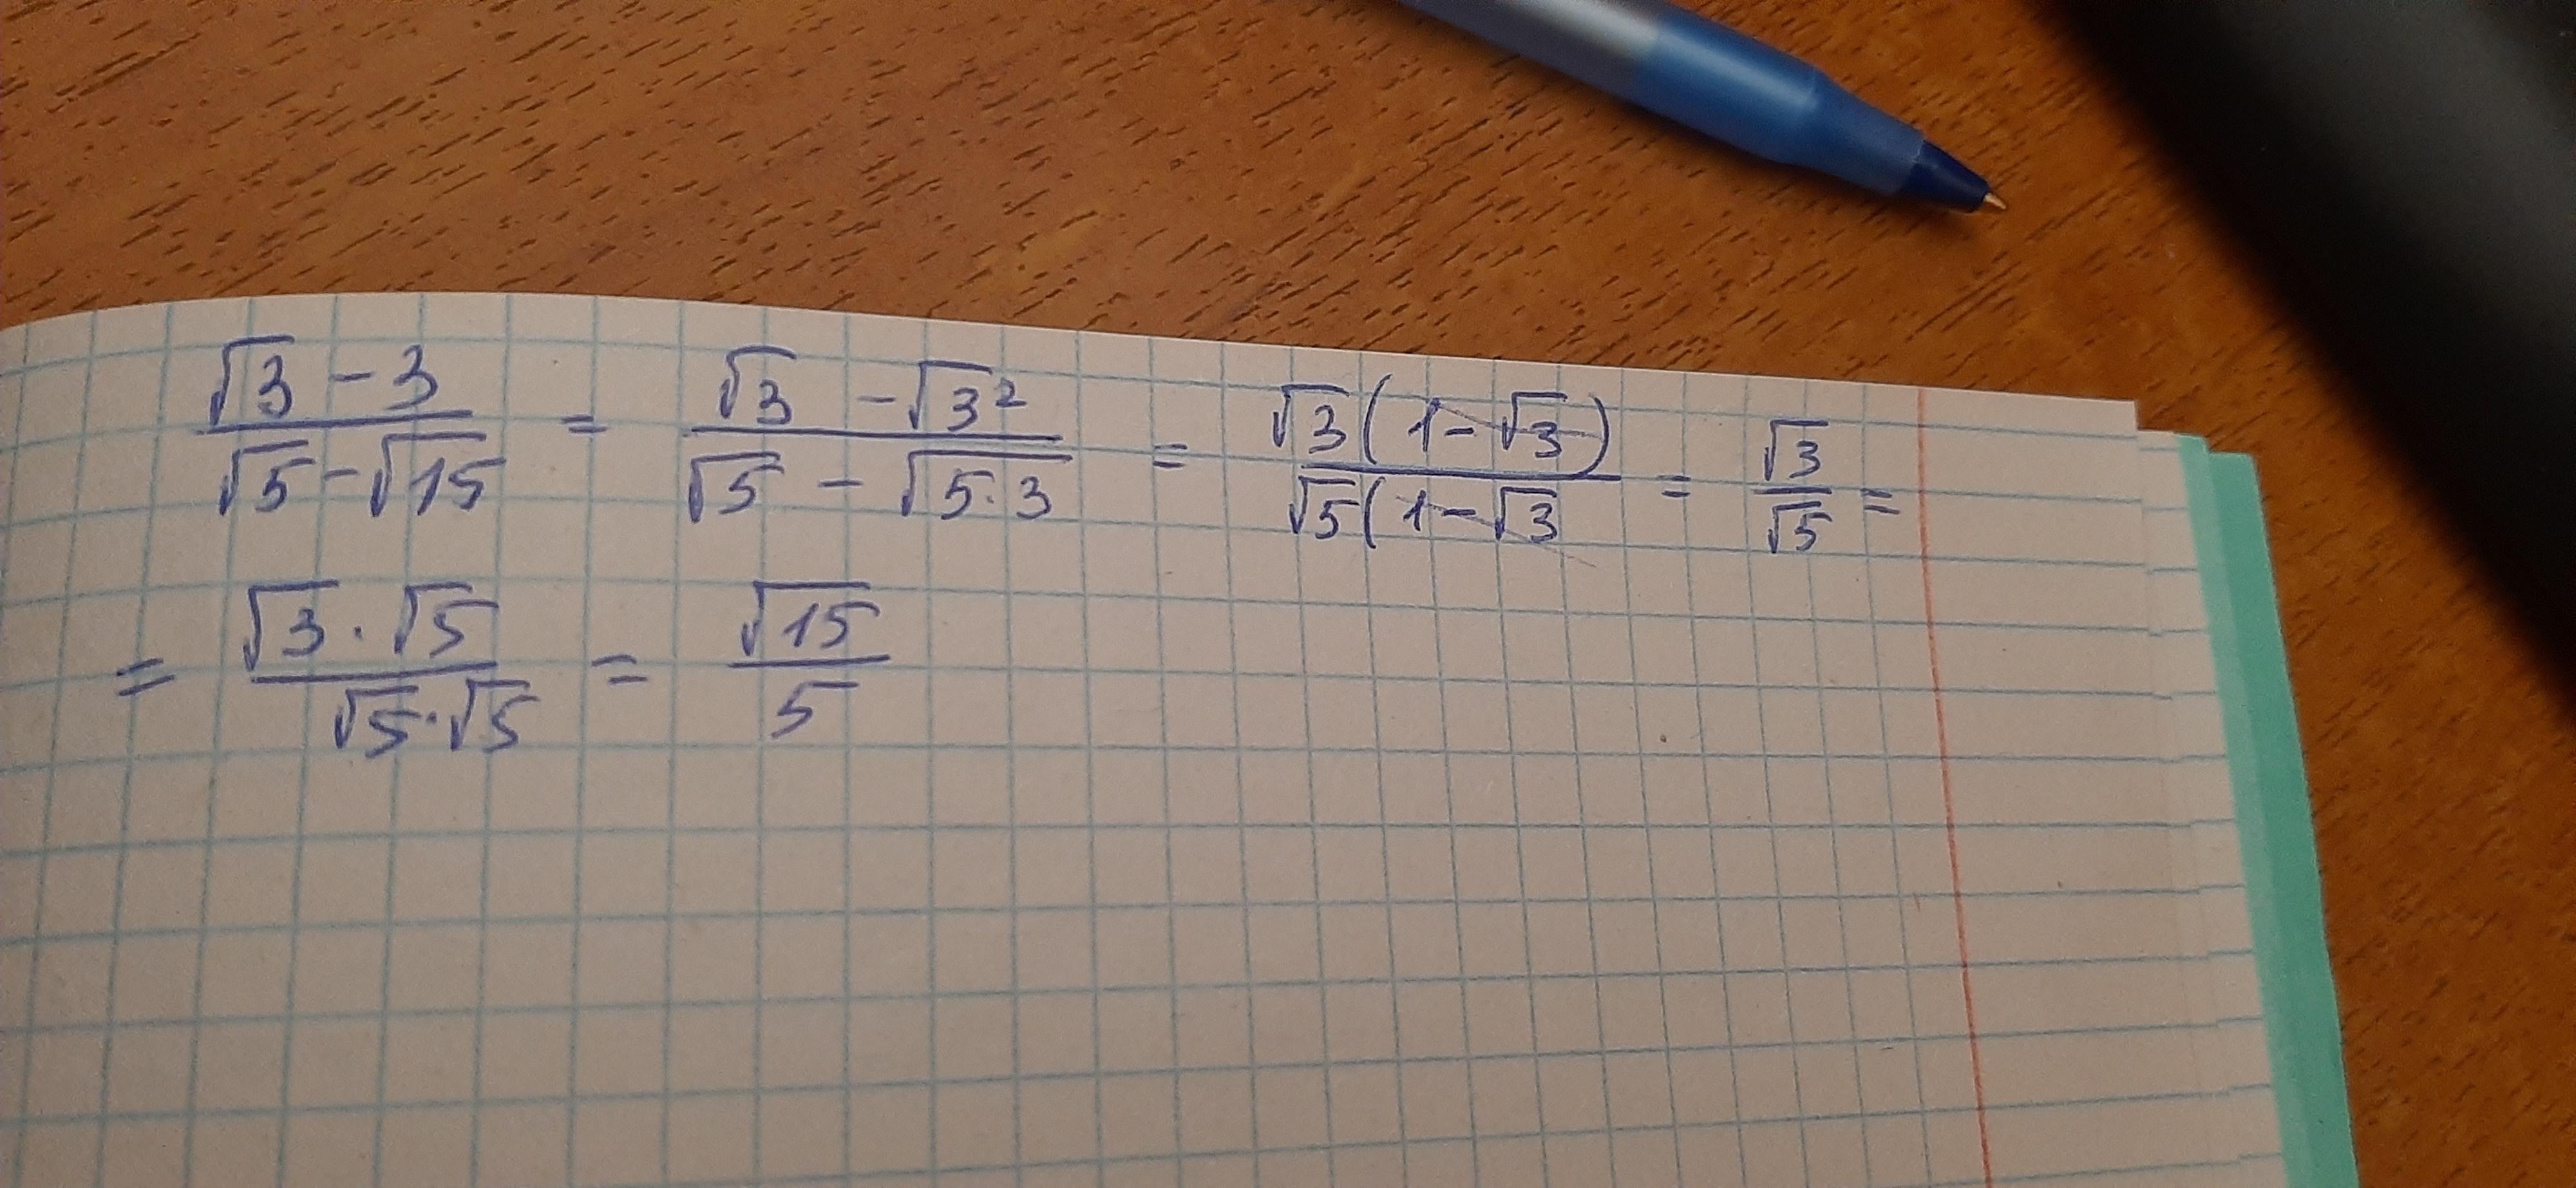 (√3 - 3)/(√5 - √15) = (√3 - √3²)/(√5 - √5·3) = √3(1-√3)/√5(1-√3 = √3/√5 =
= (√3 · √5)/(√5·√5) = √15/5